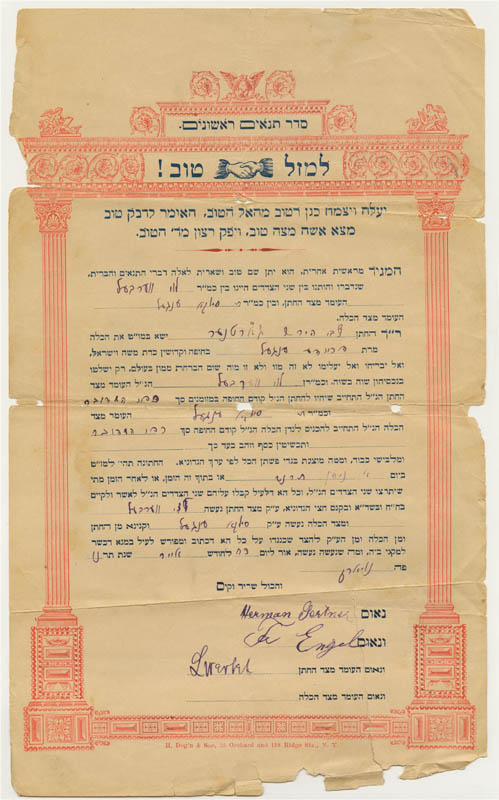 סדר תנאים ראשונים.
למזל טוב!
יעלה ויצמח כגן רטוב מהאל הטוב, האומר לדבק טוב
מצא אשה מצא טוב, ויפק רצון מד׳ הטוב.
המגיד מראשית אחרית, הוא יתן שם טוב ושארית לאלה דברי התנאים והברית,
שנדברו והותנו בין שני הצדדים היינו בין כמ״ר
העומד מצד החתן, ובין כמ״ר ענגעל
העומד מצד הכלה.
ר״ד החתן צבי הירש גארטנער ישא במו״ט את הכלה
מרת ענגעל בחופה וקדושין כדת משה וישראל,
ואל יבריחו ואל יעלימו לא זה מזו ולא זו מזה שום הברחת ממון בעולם, רק ישלטו
בנכסיהון שוה בשוה, וכמר הנ״ל העומד מצד
החתן הנ״ל התחייב שיהיו להחתן הנ״ל קודם החופה במזומנים סך
וכמ״ר ענגעל העומד מצד
הכלה הנ״ל התחייב להכניס לנדן הכלה הנ״ל קודם החופה סך
ותכשיטין כסף וזהב כערך
ומלבישי כבוד, ומטה מוצעת בגדי פשתן הכל לפי ערך הנדוניא. החתונה תהי׳ למז״ט
ביום או בתוך זה הזמן, או לאחר הזמן מתי
שיתרצו שני הצדדים הנ״ל, וכל הא דלעיל קבלו עליהם שני הצדדים הנ״ל לאשר ולקיים
בח״ח ובשד״א ובקנס חצי הנדוניא, ע״ק מצד החתן נעשה
ומצד הכלה נעשה ע״ק ענגעל וקנינא מן החתן
ומן הכלה ומן הע״ק להצד שכנגדו על כל הא דכתוב ומפורש לעיל במנא דכשר
למקני ביה, ומה שנעשה נעשה, אור ליום לחודש אייר שנת תר
פה
והכול שריר וקים
נאום Herman Gertner
ונאום Engel
ונאום העומד מצד החתן L Werbel
ונאום העומד מצד הכלה
H. Dog'n & Son, 35 Orchard and 118 Ridge Sts., N. Y.